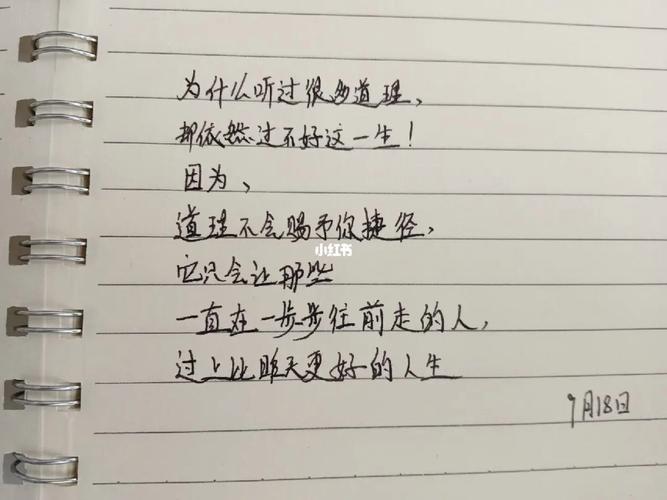 为什么听过很多道理、
却依然过不好这一生！
因为、
道理不会赐予你捷径、
小红书
它只会让那些
一直在一步步往前走的人，
过上比昨天更好的人生
9月18日